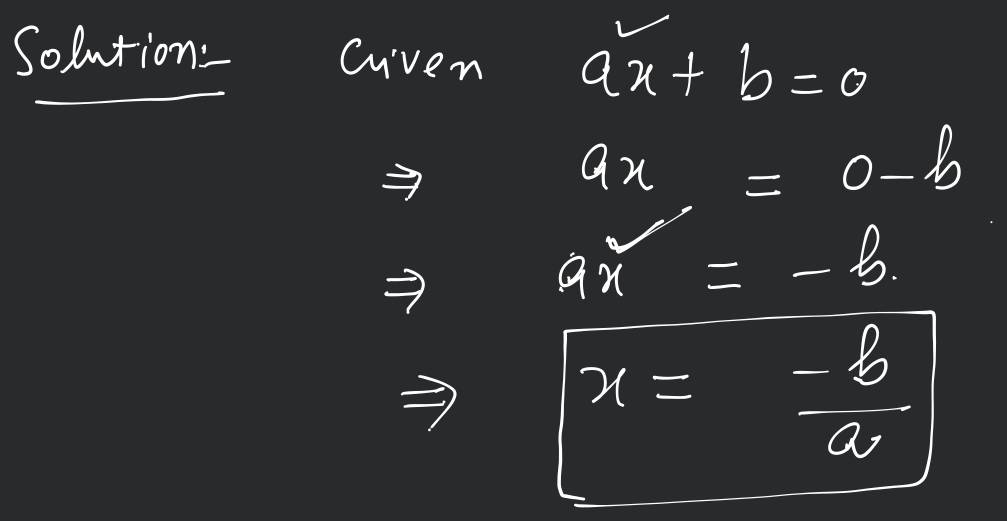 Solution:- Given ax + b = 0
⇒ ax = 0 - b
⇒ ax = - b.
⇒ x = -b/a